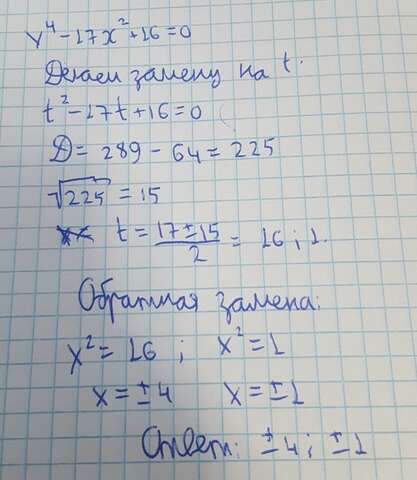 x⁴-17x²+16=0
Делаем замену на t.
t²-17t+16=0
D=289-64=225
√225=15
t=17±15/2=16;1.
Обратная замена:
x²=16; x²=1
x=±4 x=±1
Ответ: ±4; ±1